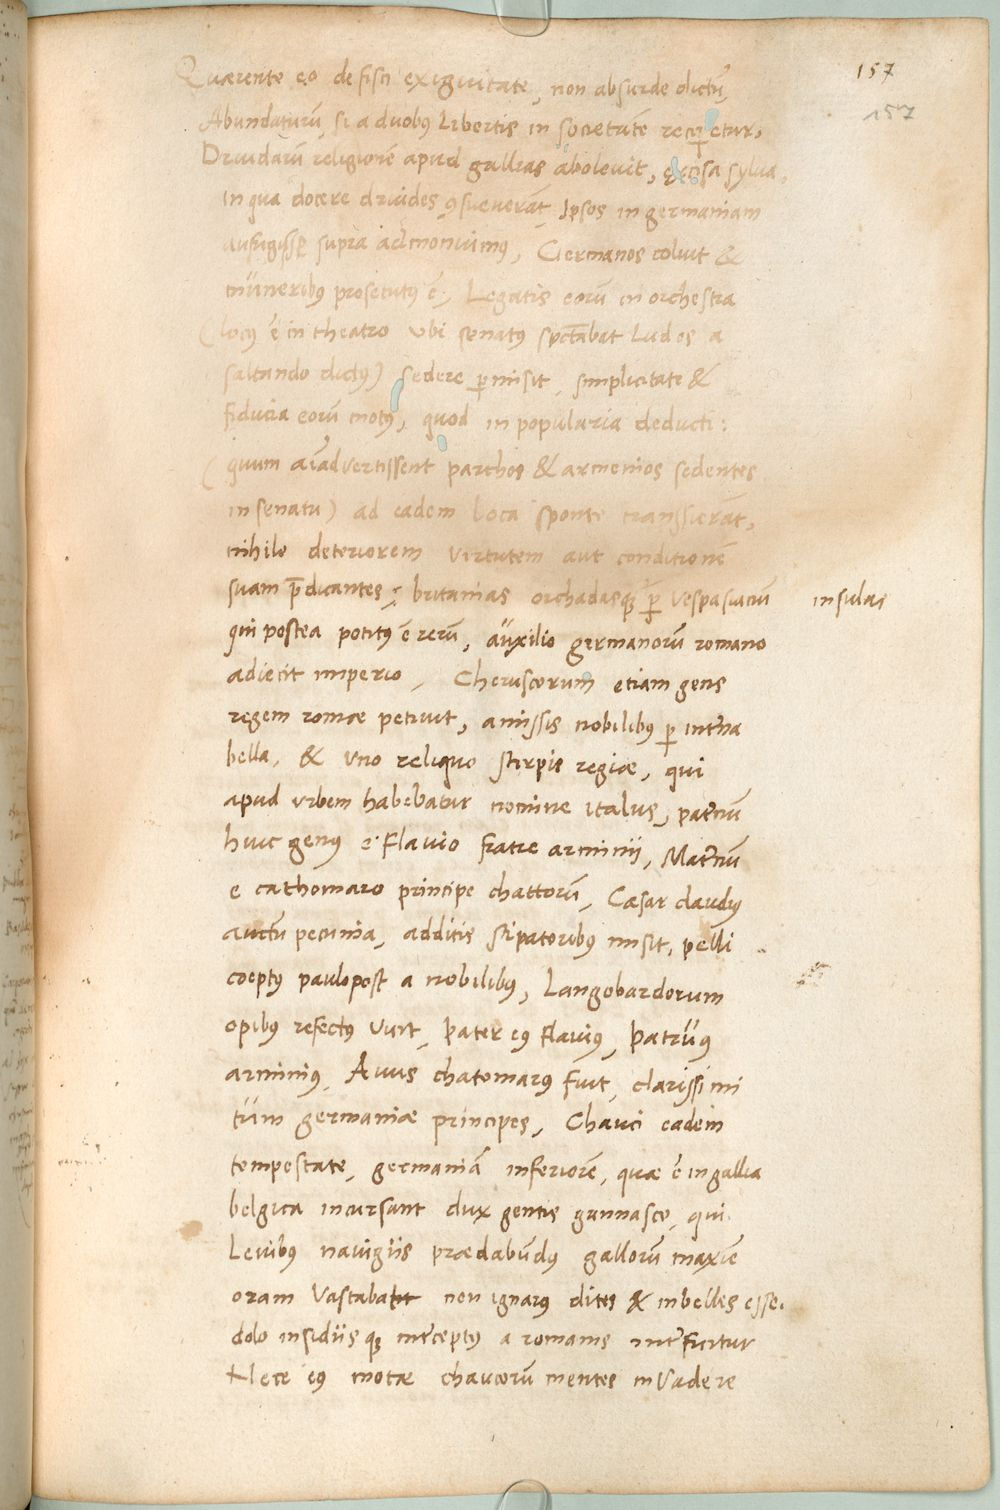 157
157
Quærente eo de fisci exiguitate, non absurde dictũ,
Abundaturũ, si a duobꝰ Libertis in societatẽ reciperetur,
Druidarũ religionẽ apud gallias abolevit, excisa sylva,
in qua docere druides ꝯsueverãt Ipsos in germaniam
aufugisse supra admonuimꝰ, Germanos coluit &
muneribꝰ prosecutꝰ ẽ, Legatis eorũ in orchestra
(locꝰ ẽ in theatro ubi senatꝰ spectabat Ludos a
saltando dictꝰ) sedere ꝑmisit, simplicitate &
fiducia eorũ motꝰ, quod in popularia deducti:
(quum aĩadvertissent parthos & armenios sedentes
in senatu) ad eadem loca sponte transierãt,
nihilo deteriorem virtutem aut conditionẽ
suam p̃dicantes; britanias orchadasqꝫ ꝑ Vespasianũ insulas
qui postea potitꝰ ẽ rerũ, auxilio germanorũ romano
adiecit imperio, Cheruscorum etiam gens
regem romæ petivit, amissis nobilibꝰ ꝑ int̃na
bella, & uno reliquo stirpis regiæ, qui
apud urbem habebatur nomine italus, pat̃nũ
huic genꝰ e Flavio fratre arminii, Mat̃nũ
e cathomaro principe chattorũ, Cæsar claudiꝰ
auctũ pecunia, additis stipatoribꝰ misit, pelli
cœptꝰ paulopost a nobilibꝰ, Langobardorum
opibus refectꝰ vicit, pater eiꝰ flaviꝰ, patruꝰ
arminiꝰ, Avus chatomarꝰ fuit, clarissimi
tum germaniæ principes, Chauci eadem
tempestate, germaniã inferiorẽ, quæ ẽ in gallia
belgica incursant dux gentis gannasco, qui
Levibꝰ navigiis prædabũdꝰ gallorũ maxĩe
oram Vastabat non ignarꝰ dites & inbelles esse,
dolo insidiisqꝫ int̃ceptꝰ a romanis int̃ficitur
Nece eiꝰ motæ chaucorũ mentes invadere